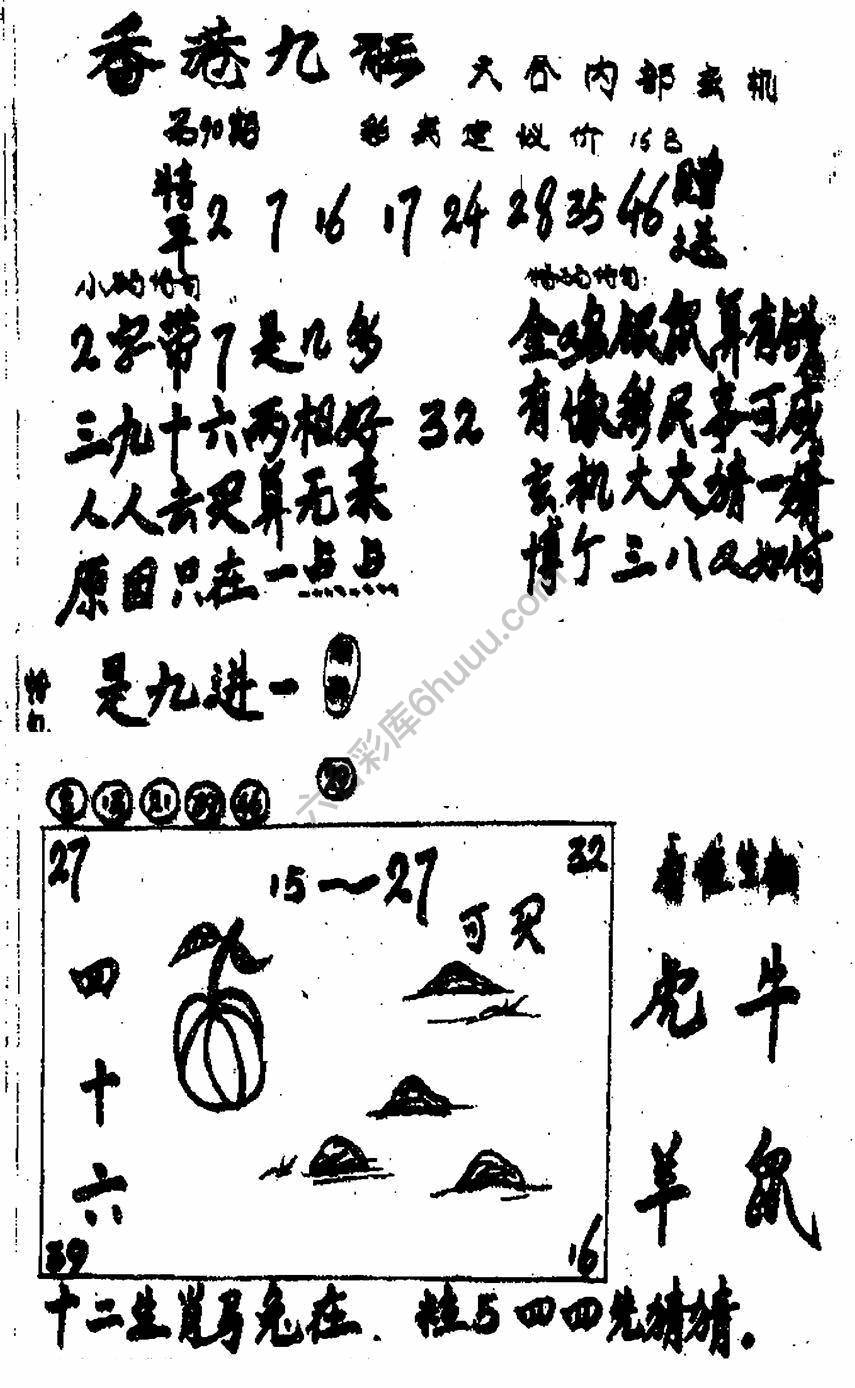 香港九龙
六合内部玄机
第90期
彩券建议价15日
特平
2 7 16 17 24 28 35 46
赠送
小码诗句
特码诗句:
2字带7是几多
三九十六两相好 32
人人去买算无来
原因只在一点点
金鸡银鼠算有错
有像彩民事可成
玄机大大猜一猜
博个三八又如何
是九进一
27
15～27
32
可买
四十六
39
16
虎 牛
羊 鼠
十二生肖马兔在、粒5四四先猜猜。
六彩库6huuu.com